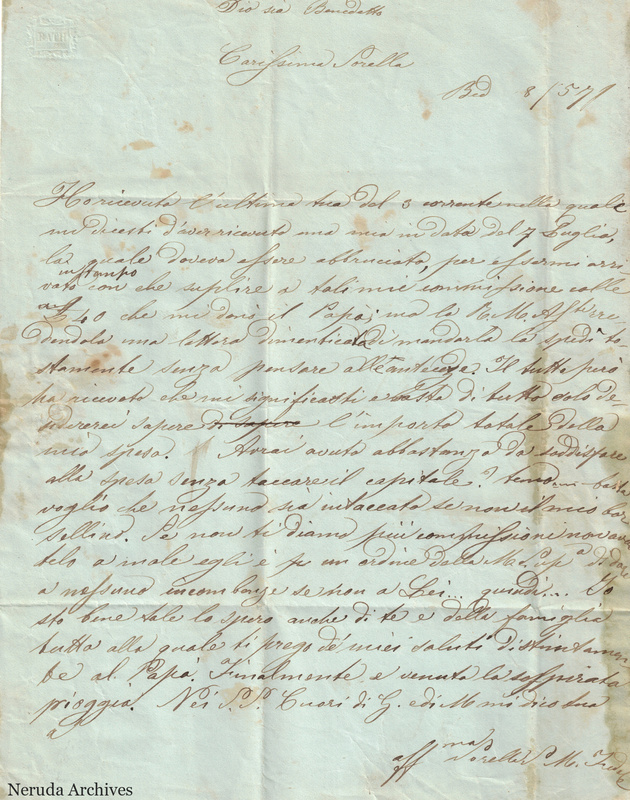 BATH
Dio sia Benedetto
Carissima Sorella
8/571
Ho ricevuta l'ultima tua del 3 corrente nella quale
mi dicesti d'aver ricevuto una mia in data del 7 Luglio,
la quale doveva essere abbruciata, per essermi arri
in tempo
vato con che suplire a tali mie commissione colle
40 che mi donò il Papà; ma la R. M. Ass.te
dendola una lettera dimenticata di mandarla la spedì to
stamente senza pensare all'antecede. Il tutto però
ho ricevuto che mi significasti e esatta di tutto solo de-
sidererei sapere di sapere l'importo totale della
mia spesa. Avrai avuto abbastanza da soddisfare
alla spesa senza taccare il capitale?
voglio che nessuno sia intaccato se non il mio bor
sellino. Se non ti diamo più commissioni non aver
telo a male egli è p un ordine della M. Sup.a di dare
a nessuno incombenze se non a Lei... quindi... Io
sto bene tale lo spero anche di te e della famiglia
tutta alla quale ti prego de' miei saluti distintamen
te al Papà. Finalmente è venuta la sospirata
pioggia. Nei S.S. Cuori di G. e di M. mi dico tua
aff.ma Sorella M.
Neruda Archives